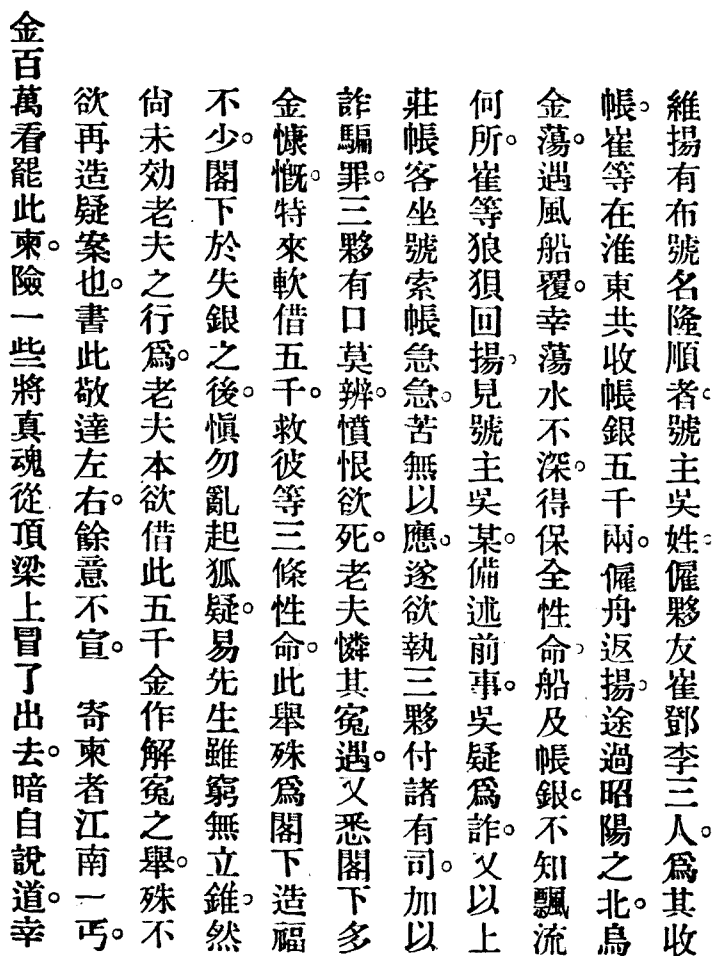 維揚有布號名隆順者。號主吳姓。僱夥友崔鄧李三人。爲其收
帳。崔等在淮東共收帳銀五千兩。僱舟返揚。途過昭陽之北。烏
金蕩。遇風船覆。幸蕩水不深。得保全性命。船及帳銀。不知飄流
何所。崔等狼狽回揚。見號主吳某。備述前事。吳疑爲詐。又以上
莊帳客坐號索帳急急。苦無以應。遂欲執三夥付諸有司。加以
詐騙罪。三夥有口莫辨。憤恨欲死。老夫憐其寃遇。又悉閣下多
金慷慨。特來軟借五千。救彼等三條性命。此舉殊爲閣下造福
不少。閣下於失銀之後。愼勿亂起狐疑。易先生雖窮無立錐。然
尙未効老夫之行爲。老夫本欲借此五千金作解寃之舉。殊不
欲再造疑案也。書此敬達左右。餘意不宣。　寄柬者江南一丐。
金百萬看罷此柬。險一些將真魂從頂梁上冒了出去。暗自說道。幸